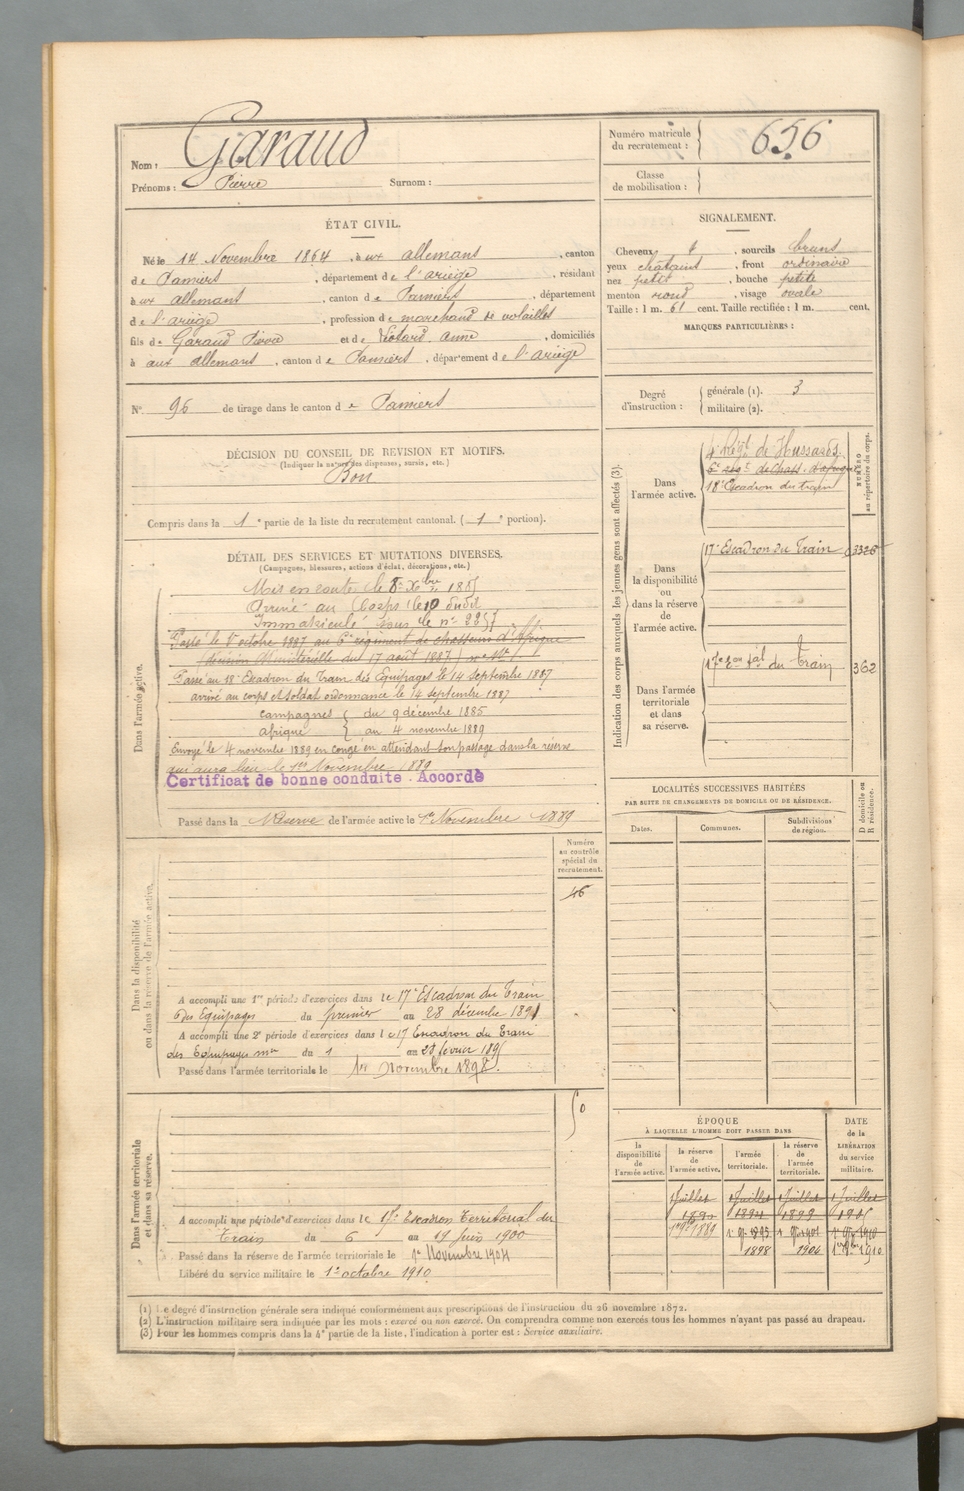 Nom : Garaud
Prénoms : Pierre Surnom :
Numéro matricule du recrutement : 656
Classe de mobilisation :
ÉTAT CIVIL.
Né le 14 Novembre 1864, à ux allemans, canton
de Pamiers, département de l'ariège, résidant
à ux allemans, canton de Pamiers, département
de l'ariège, profession de marchand de volailles
fils de Garaud Pierre et de anne, domiciliés
à aux allemans, canton de Pamiers, département de l'ariège
N° 96 de tirage dans le canton de Pamiers
SIGNALEMENT.
Cheveux &, sourcils bruns
yeux chatains, front ordinaire
nez petit, bouche petite
menton rond, visage ovale
Taille : 1 m. 61 cent. Taille rectifiée : 1 m. cent.
MARQUES PARTICULIÈRES :
Degré d'instruction : générale (1). 3
militaire (2).
DÉCISION DU CONSEIL DE REVISION ET MOTIFS.
(Indiquer la nature des dispenses, sursis, etc.)
Bon
Compris dans la 1e partie de la liste du recrutement cantonal. (1e portion).
DÉTAIL DES SERVICES ET MUTATIONS DIVERSES.
(Campagnes, blessures, actions d'éclat, décorations, etc.)
Dans l'armée active.
Mis en route le 8 Xbre 1885
Arrivé au Corps le 10 dudit
Immatriculé sous le n° 2257
Passé le 1er octobre 1887 au 6e régiment de chasseurs d'Afrique
(décision Ministérielle du 17 août 1887)
Passé au 18e Escadron du Train des Equipages le 14 septembre 1887
arrivé au corps et soldat ordonnance le 14 septembre 1887
campagnes { du 9 décembre 1885
afrique { au 4 novembre 1889
Envoyé le 4 novembre 1889 en congé en attendant son passage dans la réserve
qui aura lieu le 1er Novembre 1889
Certificat de bonne conduite Accordé
Passé dans la Réserve de l'armée active le 1er Novembre 1889
Indication des corps auxquels les jeunes gens sont affectés (3).
NUMÉRO au répertoire du corps.
Dans l'armée active.
4e Régt de Hussards.
6e régt de Chass. d'afrique
18e Escadron du train
Dans la disponibilité ou dans la réserve de l'armée active.
17e Escadron du Train 3326
Dans l'armée territoriale et dans sa réserve.
17e Eon tal du Train 362
LOCALITÉS SUCCESSIVES HABITÉES
PAR SUITE DE CHANGEMENTS DE DOMICILE OU DE RÉSIDENCE.
Dates. Communes. Subdivisions de région. D domicile ou R résidence.
Dans la disponibilité ou dans la réserve de l'armée active.
Numéro au contrôle spécial du recrutement.
46
A accompli une 1re période d'exercices dans le 17e Escadron du Train
des Equipages du premier au 28 décembre 1891
A accompli une 2e période d'exercices dans le 17 Escadron du Train
des Equipages mre du 1 au 28 février 1895
Passé dans l'armée territoriale le 1er Novembre 1898.
Dans l'armée territoriale et dans sa réserve.
A accompli une période d'exercices dans le 17e Escadron Territorial du
Train du 6 au 19 Juin 1900
Passé dans la réserve de l'armée territoriale le 1er Novembre 1904
Libéré du service militaire le 1er octobre 1910
ÉPOQUE
À LAQUELLE L'HOMME DOIT PASSER DANS
DATE de la LIBÉRATION du service militaire.
la disponibilité de l'armée active. la réserve de l'armée active. l'armée territoriale. la réserve de l'armée territoriale.
1 Juillet 1 Juillet 1 Juillet 1 Juillet
1890 1894 1899 1905
1898 1904 1910
(1) Le degré d'instruction générale sera indiqué conformément aux prescriptions de l'instruction du 26 novembre 1872.
(2) L'instruction militaire sera indiquée par les mots : exercé ou non exercé. On comprendra comme non exercés tous les hommes n'ayant pas passé au drapeau.
(3) Pour les hommes compris dans la 4e partie de la liste, l'indication à porter est : Service auxiliaire.